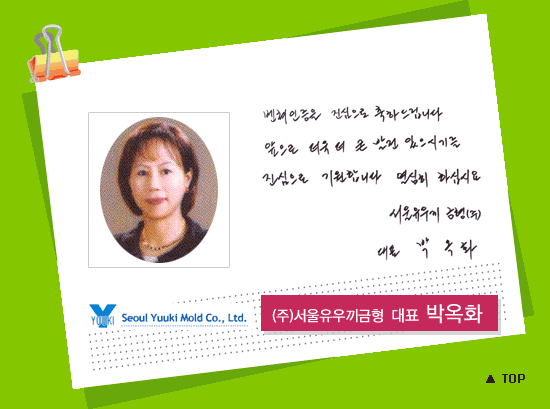 벤처인증을 진심으로 축하드립니다
앞으로 더욱 더 큰 발전 있으시기를
진심으로 기원합니다 열심히 하십시요
서울유우끼 금형(주)
대표 박 옥 화
YUUKI
Seoul Yuuki Mold Co., Ltd.
(주)서울유우끼금형 대표 박옥화
▲ TOP